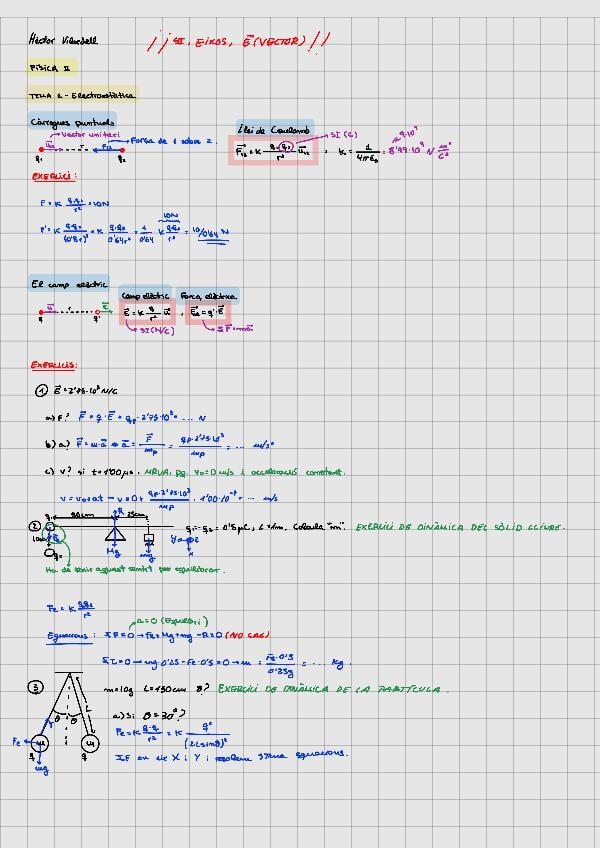 Hèctor Vilardell // SI, EIXOS, E (VECTOR) //
FÍSICA II
TEMA 1 - Electrostàtica
Càrregues puntuals
Vector unitari
Força de 1 sobre 2.
q₁ r F₁₂ q₂
Llei de Coulomb
SI (C)
F₁₂ = K q₁·q₂/r² · u₁₂ ; K = 1/4πε₀ = 8'99·10⁹ N m²/C²
9·10⁹
EXERCICI:
F = K q₁·q₂/r² = 10N
10N
F' = K q₁·q₂/(0'8r)² = K q₁·q₂/0'64r² = 1/0'64 · K q₁·q₂/r² = 10/0'64 N
El camp elèctric
Camp elèctric Força elèctrica
u r E
q q'
E = K q/r² u ; Fe = q'·E
SI (N/C) ΣF = m·a
EXERCICIS:
① E = 2'75·10³ N/C
a) F? F = q·E = qp·2'75·10³ = ... N
b) a? F = m·a → a = F/mp = qp·2'75·10³/mp = ... m/s²
c) v? si t = 1'00 μs. MRUA, pq. v₀ = 0 m/s i acceleració constant.
v = v₀ + at → v = 0 + qp·2'75·10³/mp · 1'00·10⁻⁶ = ... m/s
② q₁ 50cm R 25cm
q₁ = q₂ = 0'5μC, L = 1m. Calcula "m". EXERCICI DE DINÀMICA DEL SÒLID LLIURE.
Mg mg
q₂
Ha de tenir aquest sentit per equilibrar.
Fe = K q·q₂/r²
a = 0 (Equilibri)
Equacions: ΣF = 0 → Fe + Mg + mg - R = 0 (NO CAL)
ΣZ = 0 → mg·0'25 - Fe·0'5 = 0 → m = Fe·0'5/0'25g = ... Kg.
③ m = 10g L = 150cm q? EXERCICI DE DINÀMICA DE LA PARTÍCULA.
a) Si θ = 30°?
T θ θ L
Fe = K q·q/r² = K q²/(2Lsinθ)²
Fe m m
q q
mg
ΣF en eix X i Y i resolem sistema equacions.